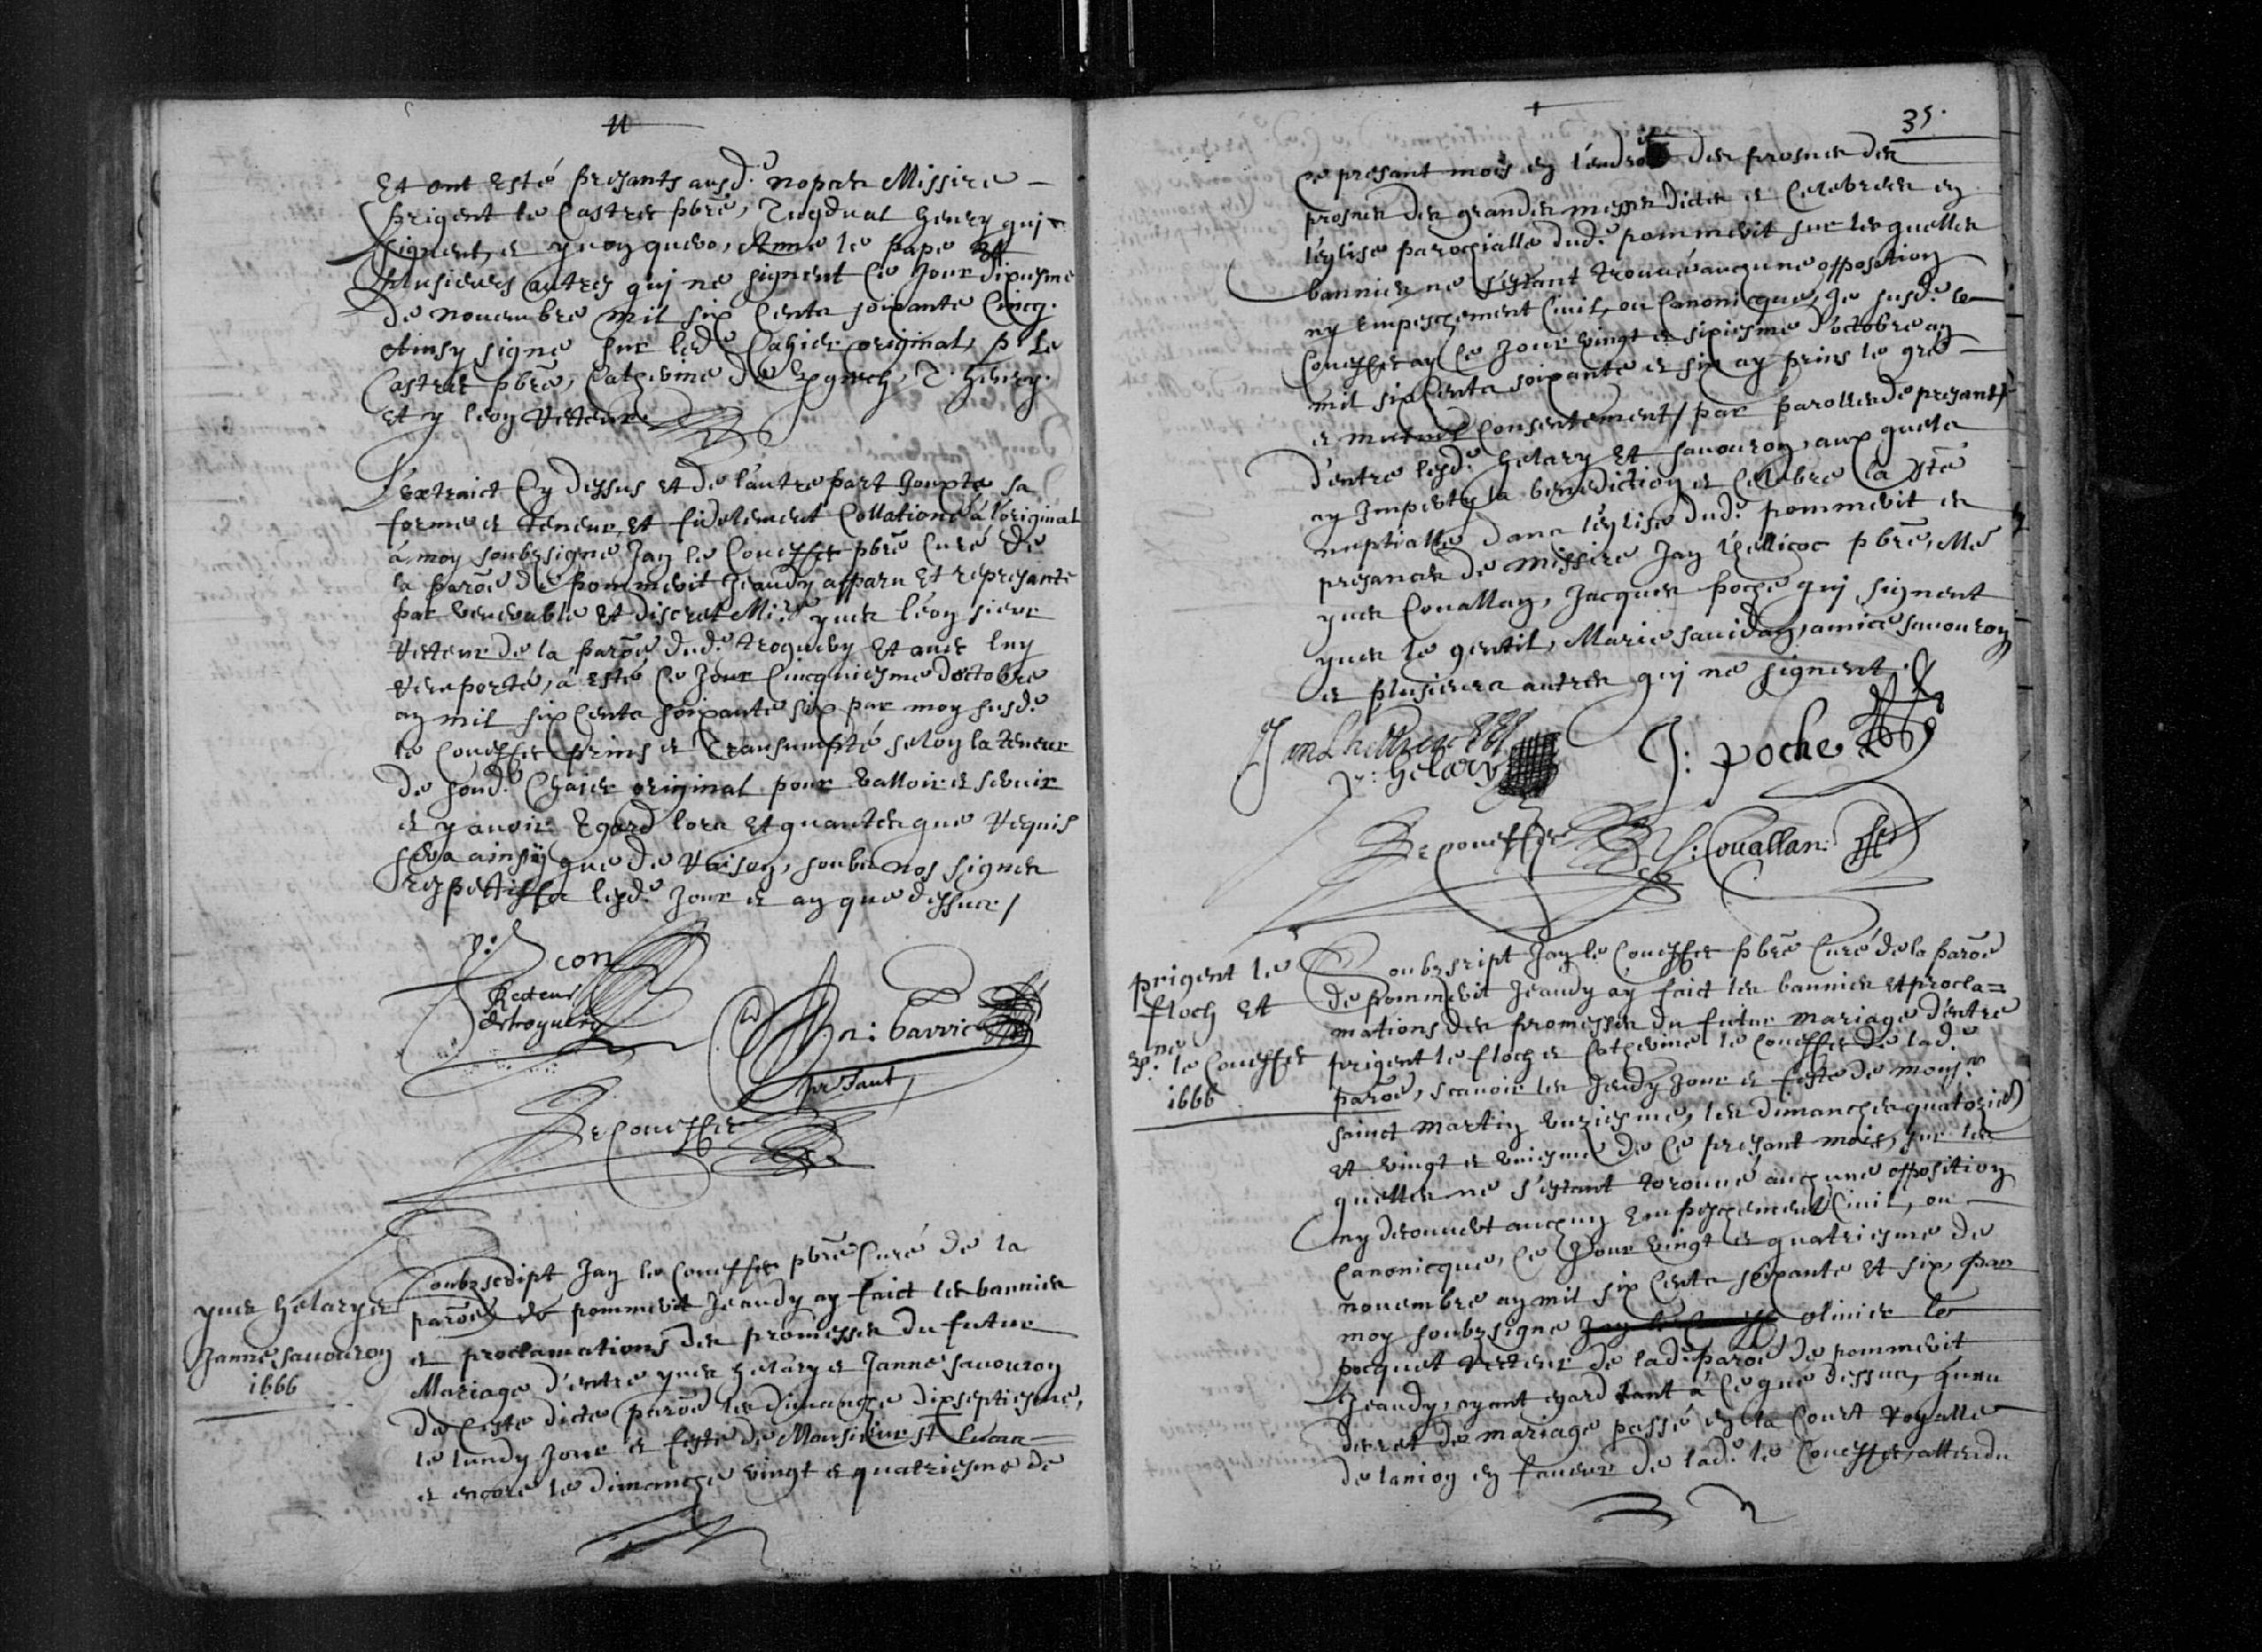 Et ont esté presants ausd. nopces Missire
prigent le Castrer pbre, Tugdual henry qui
signent, et yvon quero, Anne le pape et
plusieurs autres qui ne signent ce jour dixiesme
de novembre mil six cents soixante cincq.
Ainsy signe sur led. Cahier original, p. Le
Castrer pbre, Catherine de, T. henry.
Et y leon Recteur
L'extraict cy dessus et de l'autre part jouxte sa
forme et teneur, et fidelement collationé à l'original
à moy soubzsigné Jan le Coueffer pbre curé de
la paroe de pommerit Jeaudy apparu et represante
par venerable et discret Mire yves léon sieur
Recteur de la paroe dud. troguery et avec luy
remporté, a esté ce jour cincquiesme d'octobre
an mil six cents soixante six par moy susd.
le Coueffer prins et transumpté selon la teneur
de sond. Chaier original pour valloir et servir
et y avoir egard lors et quantes que requis
sera ainsy que de raison, soubz nos signes
respectiffs lesd. jour et an que dessus /
y: Leon
Recteur
de troguery
presant
Le Coueffer
yves helary et
Janne savouron
1666
Soubzscript Jan le Coueffer pbre curé de la
paroe de pommerit Jeaudy ay faict les bannies
et proclamations des promesses du futur
Mariage d'entre yves helary et Janne savouron
de ceste dicte paroe le dimanche dixseptiesme,
le lundy jour et feste de Monsieur st Lucas
et encore le dimanche vingt et quatriesme de
35.
ce presant mois en l'endroit des prosnes des
prosnes des grandes messes dictes et celebrees en
l'eglise parochialle dud. pommerit sur lesquelles
bannies ne s'estant trouvé aucune opposition
ny empeschement civil, ou canonicque, Je susd. le
Coueffer ay ce jour vingt et sixiesme d'octobre an
mil six cents soixante et six ay prins le gré
et mutuel consentement / par parolles de presant /
d'entre lesd. helary et savouron, auxquels
ay imperty la benediction et celebre la ste
nuptialle dans l'eglise dud. pommerit es
presances de missire Jan pbre, Me
yves Couallan, Jacques poche qui signent
yves le gentil, Marie savidan, amice savouron
et plusieurs autres qui ne signent.
y: helary
J: poche
Le Coueffer
Y: Couallan
prigent le
floch et
ne le Coueffer
1666
Soubzscript Jan le Coueffer pbre curé de la paroe
de pommerit Jeaudy ay faict les bannies et procla=
mations des promesses du futur mariage d'entre
prigent le floch et Catherine le Coueffer de lad.
paroe, scavoir les jeudy jour et feste de monsr
sainct martin unziesme, les dimanches quatorzie
et vingt et uniesme de ce presant mois, sur les
quelles ne s'estant trouvé aucune opposition
ny decouvert aucun empeschement civil, ou
canonicque, ce jour vingt et quatriesme de
novembre an mil six cents soixante et six, par
moy soubzsigné Jan le Coueff olivier le
pocquet recteur de lad. paroe de pommerit
Jeaudy, ayant egard tant à ce que dessus, qu'au
decret de mariage passé en la Court royalle
de lanion en faveur de lad. le Coueffer, attendu